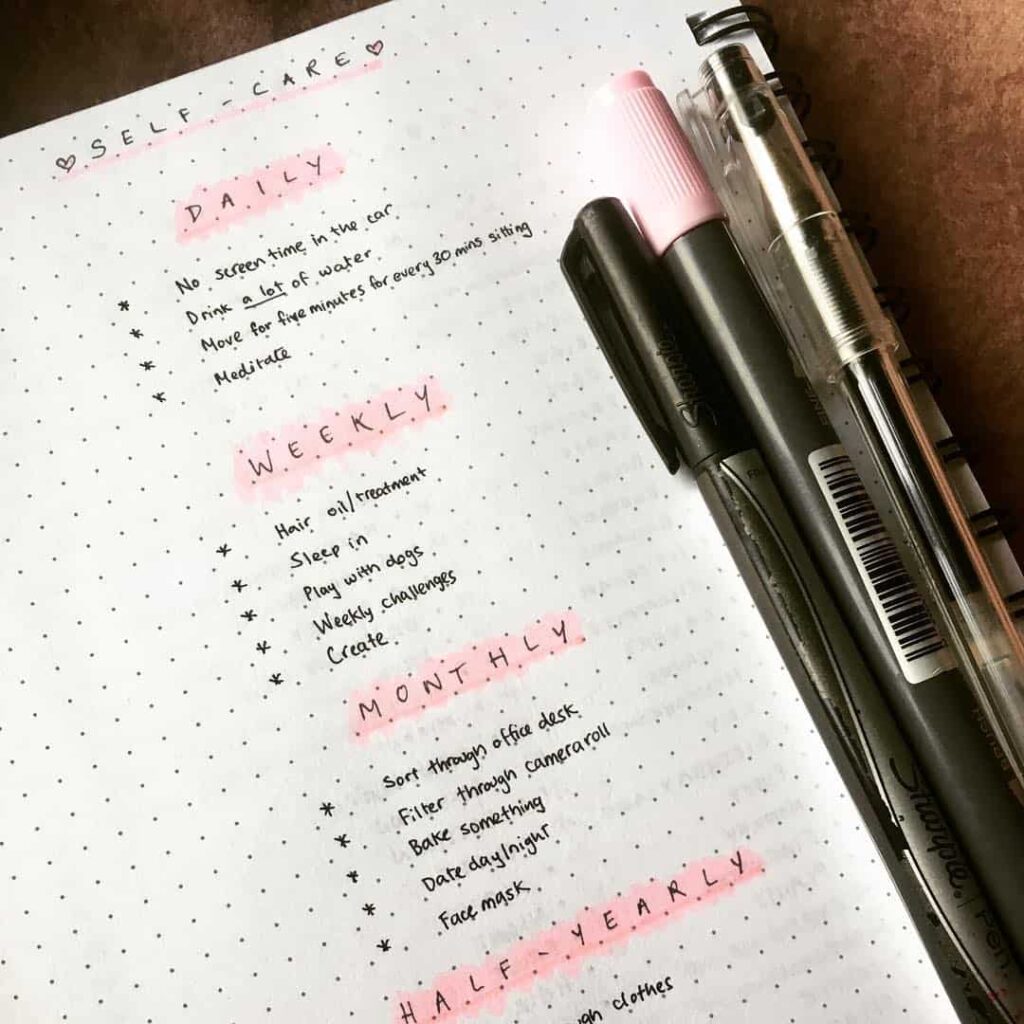 ♡ SELF-CARE ♡
DAILY
* No screen time in the car
* Drink a lot of water
* Move for five minutes for every 30 mins sitting
* Meditate
WEEKLY
* Hair oil/treatment
* Sleep in
* Play with dogs
* Weekly challenges
* Create
MONTHLY
* Sort through office desk
* Filter through camera roll
* Bake something
* Date day/night
* Face mask
HALF-YEARLY
clothes
Sharpie
Sharpie. Pen